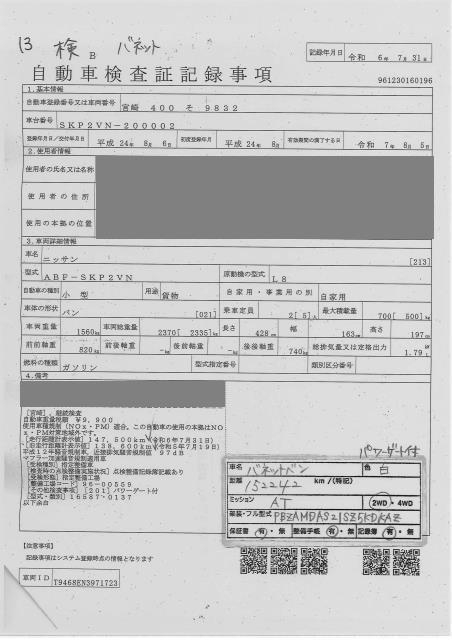 13 検 B バネット
記録年月日 令和 6年 7月 31日
自動車検査証記録事項
961230160196
1.基本情報
自動車登録番号又は車両番号 宮崎 400 そ 9832
車台番号 SKP2VN-200002
登録年月日/交付年月日 平成 24年 8月 6日 初度登録年月 平成 24年 8月 有効期間の満了する日 令和 7年 8月 5日
2.使用者情報
使用者の氏名又は名称
使用者の住所
使用の本拠の位置
3.車両詳細情報
車名 ニッサン [213]
型式 ABF-SKP2VN 原動機の型式 L8
自動車の種別 小型 用途 貨物 自家用・事業用の別 自家用
車体の形状 バン [021] 乗車定員 2[ 5]人 最大積載量 700[ 500]kg
車両重量 1560kg 車両総重量 2370[ 2335]kg 長さ 428cm 幅 163cm 高さ 197cm
前前軸重 820kg 前後軸重 -kg 後前軸重 -kg 後後軸重 740kg 総排気量又は定格出力 1.79L
燃料の種類 ガソリン 型式指定番号 類別区分番号
4.備考
[宮崎], 継続検査
自動車重量税額 ¥9,900
使用車種規制(NOx・PM)適合, この自動車の使用の本拠はNO
x・PM対策地域外です。
[走行距離計表示値] 147,500km(令和6年7月31日)
[旧走行距離計表示値] 138,600km(令和5年7月19日)
平成12年騒音規制車, 近接排気騒音規制値 97dB
マフラー加速騒音規制適用車
[受検種別] 指定整備車
[検査時の点検整備実施状況] 点検整備記録簿記載あり
[受検形態] 指定整備工場
[整備工場コード] 96-00559
[その他検査事項] [201] パワーゲート付
[型式・類別] 16587-0137
以下余白
パワーゲート付
車名 バネットバン 色 白
距離 152242 km/(特記)
ミッション AT 2WD・4WD
架装・フル型式
保証書 有・無 整備手帳 有・無 記録簿 有・無
【注意事項】
記録事項はシステム登録時点の情報となります
車両ID T9468EN3971723